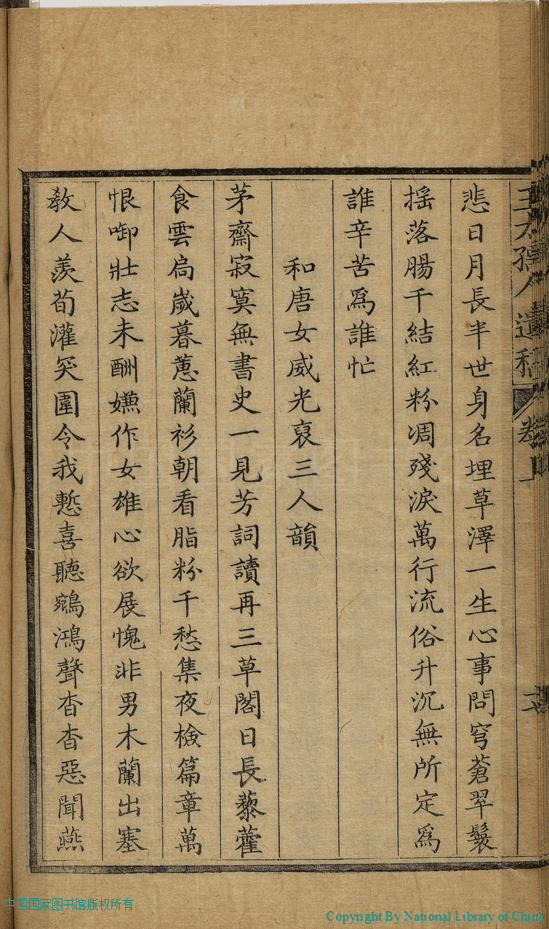 悲日月長半世身名埋草澤一生心事問穹蒼翠鬟
搖落腸千結紅粉凋殘淚萬行流俗升沉無所定為
誰辛苦爲誰忙
和唐女威光裒三人韻
茅齋寂寞無書史一見芳詞讀再三草閣日長藜藿
食雲扃歲暮蕙蘭衫朝看脂粉千愁集夜檢篇章萬
恨啣壯志未酬嫌作女雄心欲展愧非男木蘭出塞
教人羨荀灌突圍令我慙喜聽鵷鴻聲杳杳惡聞燕
中国国家图书馆版权所有
Copyright By National Library of China